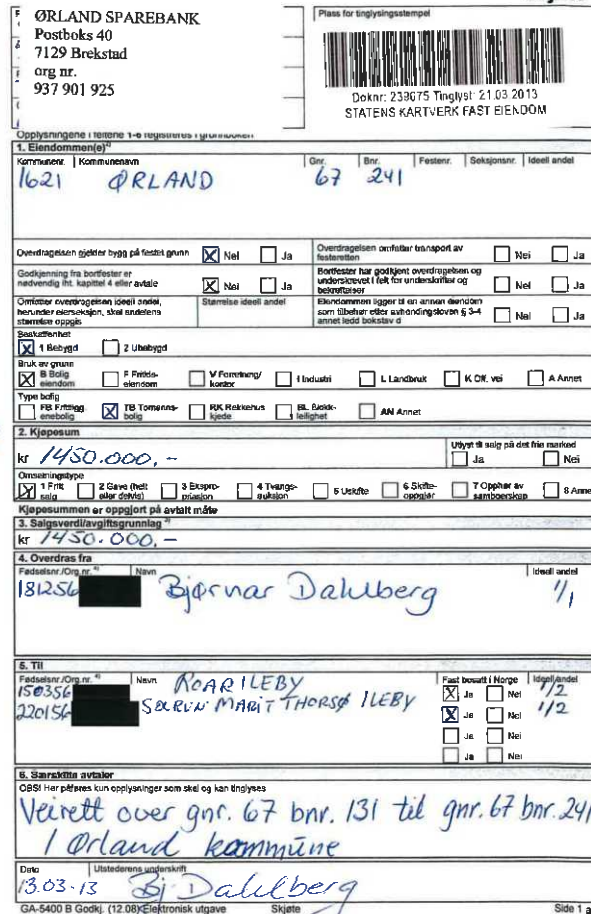 ØRLAND SPAREBANK
Postboks 40
7129 Brekstad
org nr.
937 901 925
Plass for tinglysingsstempel
Doknr: 239675 Tinglyst: 21.03.2013
STATENS KARTVERK FAST EIENDOM
Opplysningene i feltene 1-6 registreres i grunnboken
1. Eiendommen(e)
Kommunenr. Kommunenavn Gnr. Bnr. Festenr. Seksjonsnr. Ideell andel
1621 ØRLAND 67 241
Overdragelsen gjelder bygg på festet grunn X Nei Ja Overdragelsen omfatter transport av festeretten Nei Ja
Godkjenning fra bortfester er nødvendig iht. kapittel 4 eller avtale X Nei Ja Bortfester har godkjent overdragelsen og underskrevet i felt for underskrifter og bekreftelser Nei Ja
Omfatter overdragelsen ideell andel, herunder eierseksjon, skal andelens størrelse oppgis Størrelse ideell andel Eiendommen ligger til en annen eiendom som tilbehør etter avhendingsloven § 3-4 annet ledd bokstav d Nei Ja
Beskaffenhet
X 1 Bebygd 2 Ubebygd
Bruk av grunn
X B Bolig eiendom F Fritids- eiendom V Forretning/ kontor I Industri L Landbruk K Off. vei A Annet
Type bolig
FB Frittligg. enebolig X TB Tomanns- bolig RK Rekkehus kjede BL Blokk- leilighet AN Annet
2. Kjøpesum
kr 1450.000,- Utlyst til salg på det frie marked Ja Nei
Omsetningstype
X 1 Fritt salg 2 Gave (helt eller delvis) 3 Ekspro- priasjon 4 Tvangs- auksjon 5 Uskifte 6 Skifte- oppgjør 7 Opphør av samboerskap 8 Anne
Kjøpesummen er oppgjort på avtalt måte
3. Salgsverdi/avgiftsgrunnlag
kr 1450.000,-
4. Overdras fra
Fødselsnr./Org.nr. Navn Ideell andel
181256 Bjørnar Dahlberg 1/1
5. Til
Fødselsnr./Org.nr. Navn Fast bosatt i Norge Ideell andel
150356 ROAR ILEBY X Ja Nei 1/2
220156 SØLRUN MARIT THORSØ ILEBY X Ja Nei 1/2
Ja Nei
Ja Nei
6. Særskilte avtaler
OBS! Her påføres kun opplysninger som skal og kan tinglyses
Veirett over gnr. 67 bnr. 131 til gnr. 67 bnr. 241
i Ørland kommune
Dato Utstederens underskrift
13.03-13 Bj Dahlberg
GA-5400 B Godkj. (12.08) Elektronisk utgave Skjøte Side 1 a